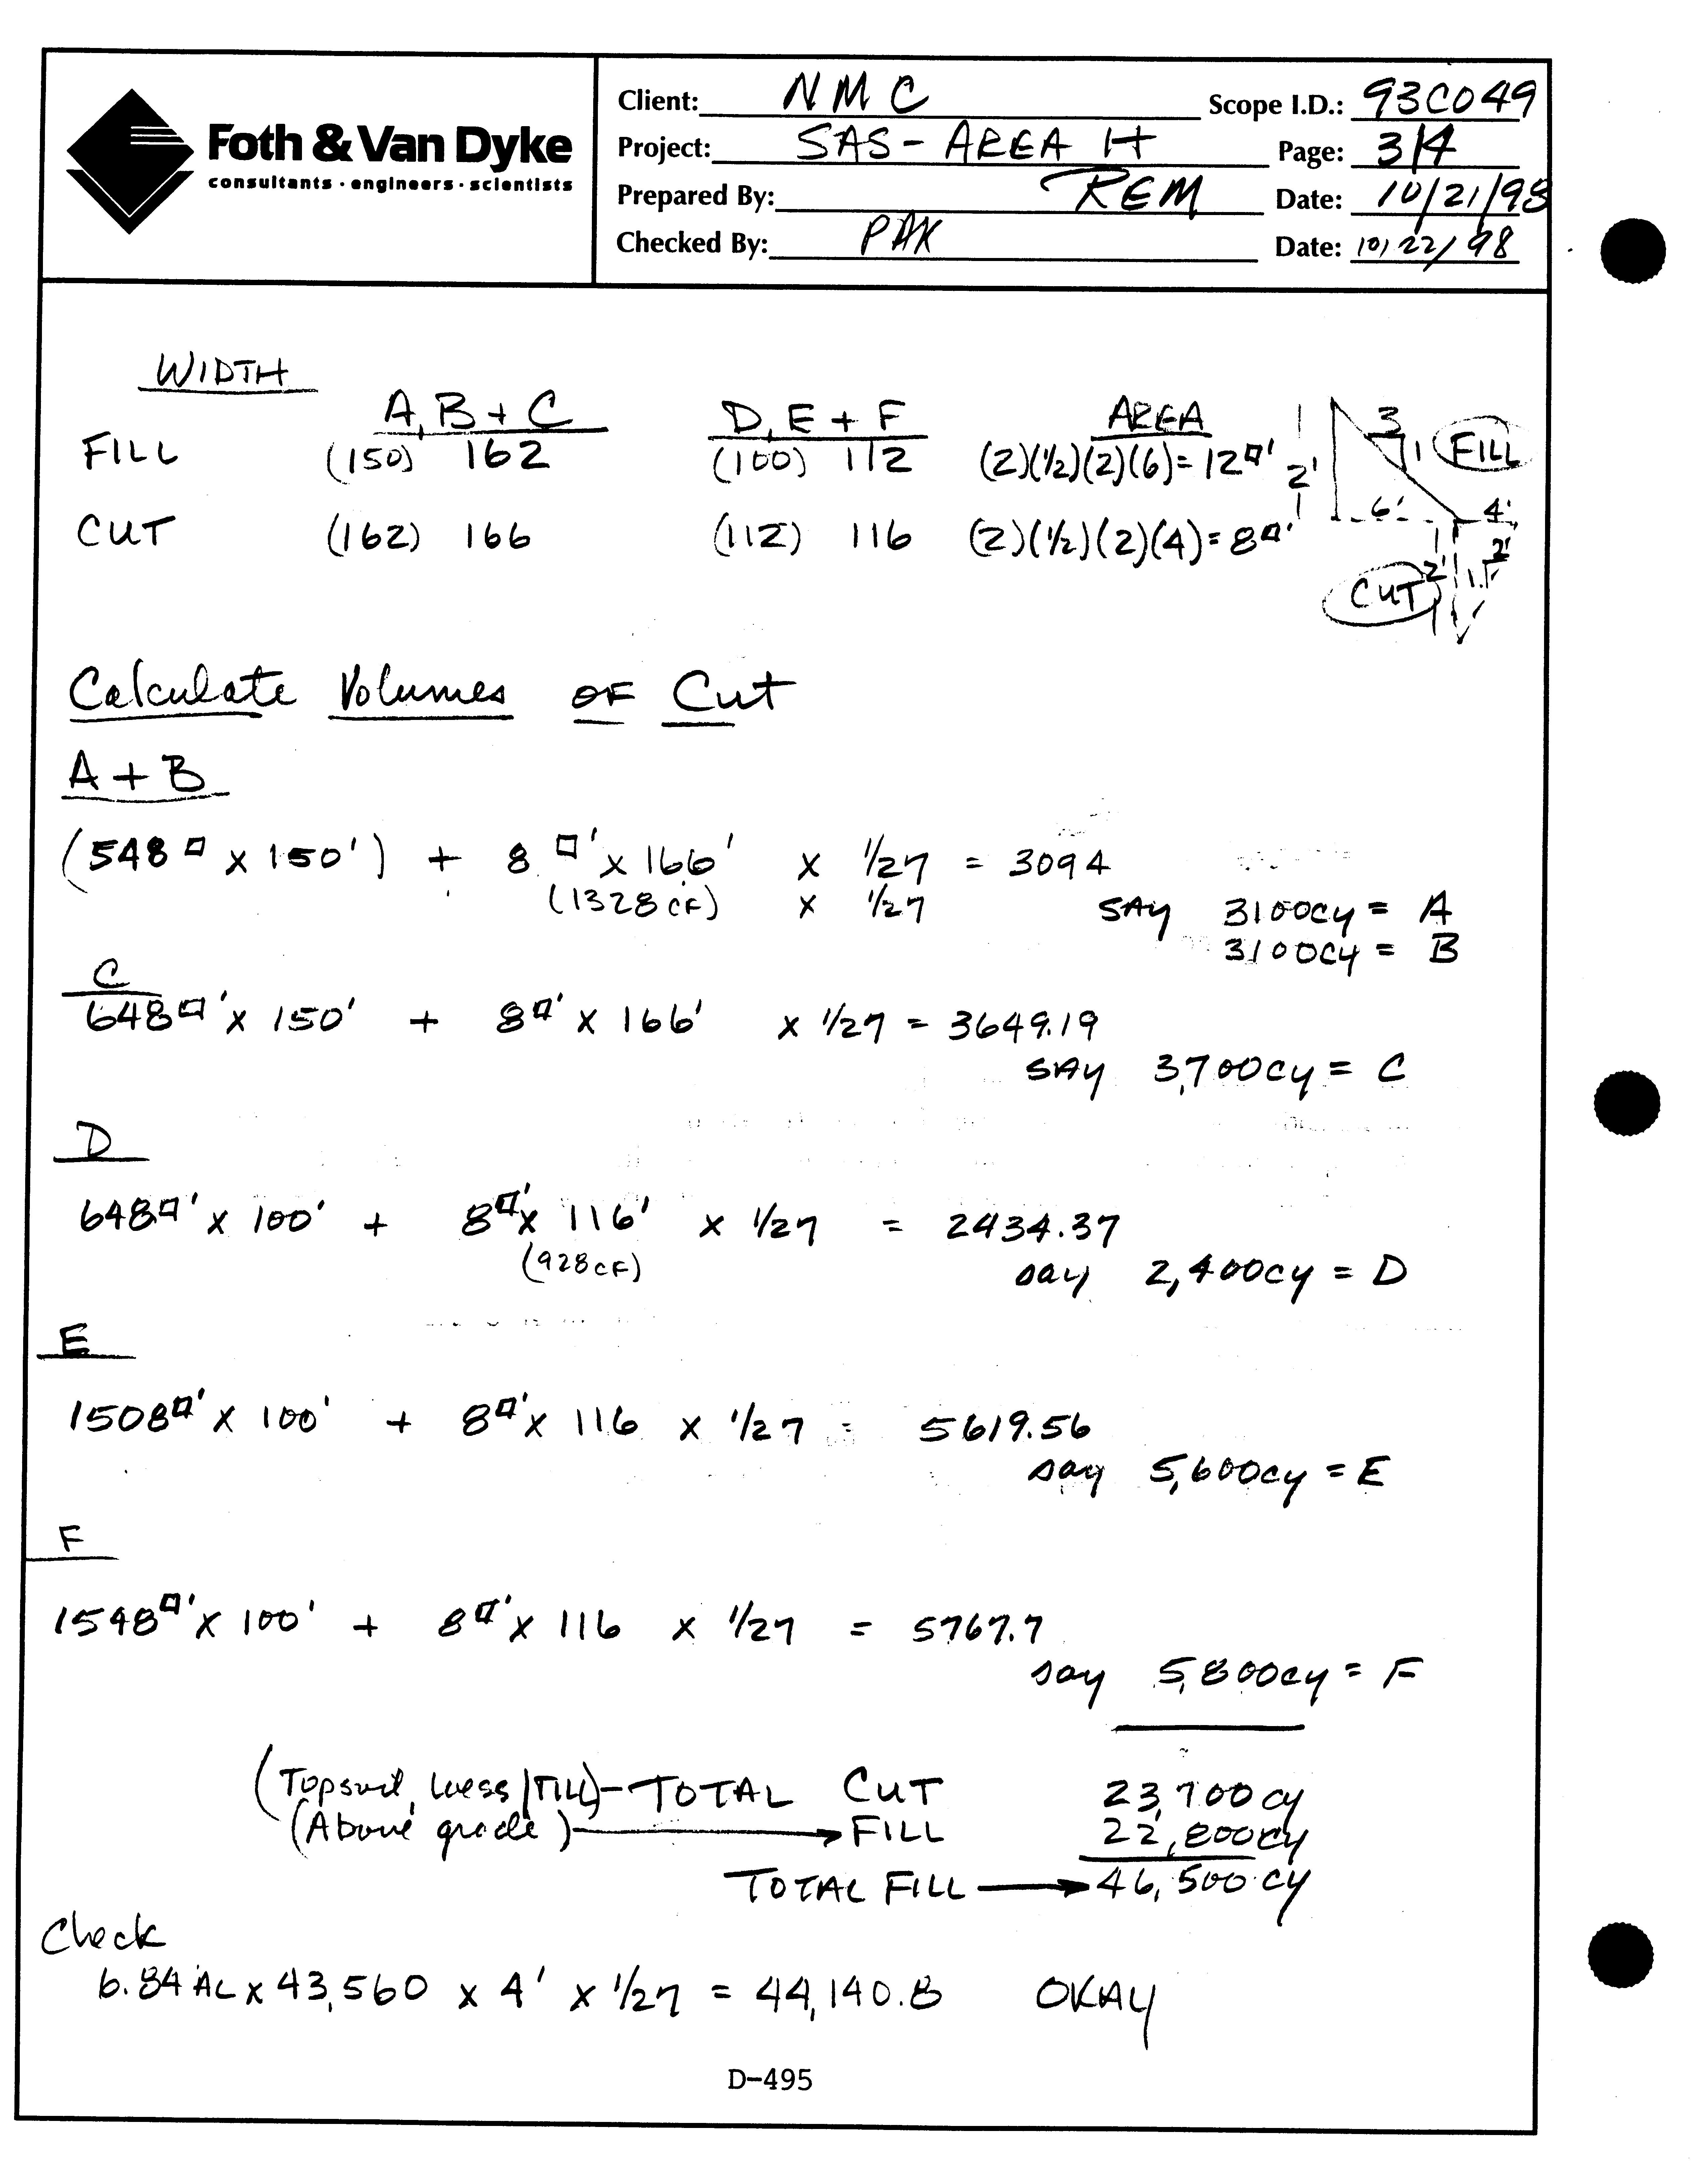 Foth & Van Dyke
consultants · engineers · scientists
Client: NMC Scope I.D.: 93C049
Project: SAS - AREA H Page: 3/4
Prepared By: REM Date: 10/21/98
Checked By: PAK Date: 10/22/98
WIDTH
A, B + C D, E + F AREA
FILL (150) 162 (100) 112 (2)(1/2)(2)(6) = 12□'
CUT (162) 166 (112) 116 (2)(1/2)(2)(4) = 8□'
3
1 FILL
2'
6' 4'
2' 2'
1
CUT
Calculate Volumes OF Cut
A + B
(548□ x 150') + 8□' x 166' x 1/27 = 3094
(1328 CF) x 1/27 SAY 3100CY = A
3100CY = B
C
648□' x 150' + 8□' x 166' x 1/27 = 3649.19
SAY 3,700CY = C
D
648□' x 100' + 8□' x 116' x 1/27 = 2434.37
(928CF)
say 2,400CY = D
E
1508□' x 100' + 8□' x 116 x 1/27 = 5619.56
say 5,600CY = E
F
1548□' x 100' + 8□' x 116 x 1/27 = 5767.7
say 5,800CY = F
(Topsoil, Loess/Till) - TOTAL CUT 23,700 CY
(Above grade) → FILL 22,800CY
TOTAL FILL → 46,500 CY
Check
6.84 AC x 43,560 x 4' x 1/27 = 44,140.8 OKAY
D-495